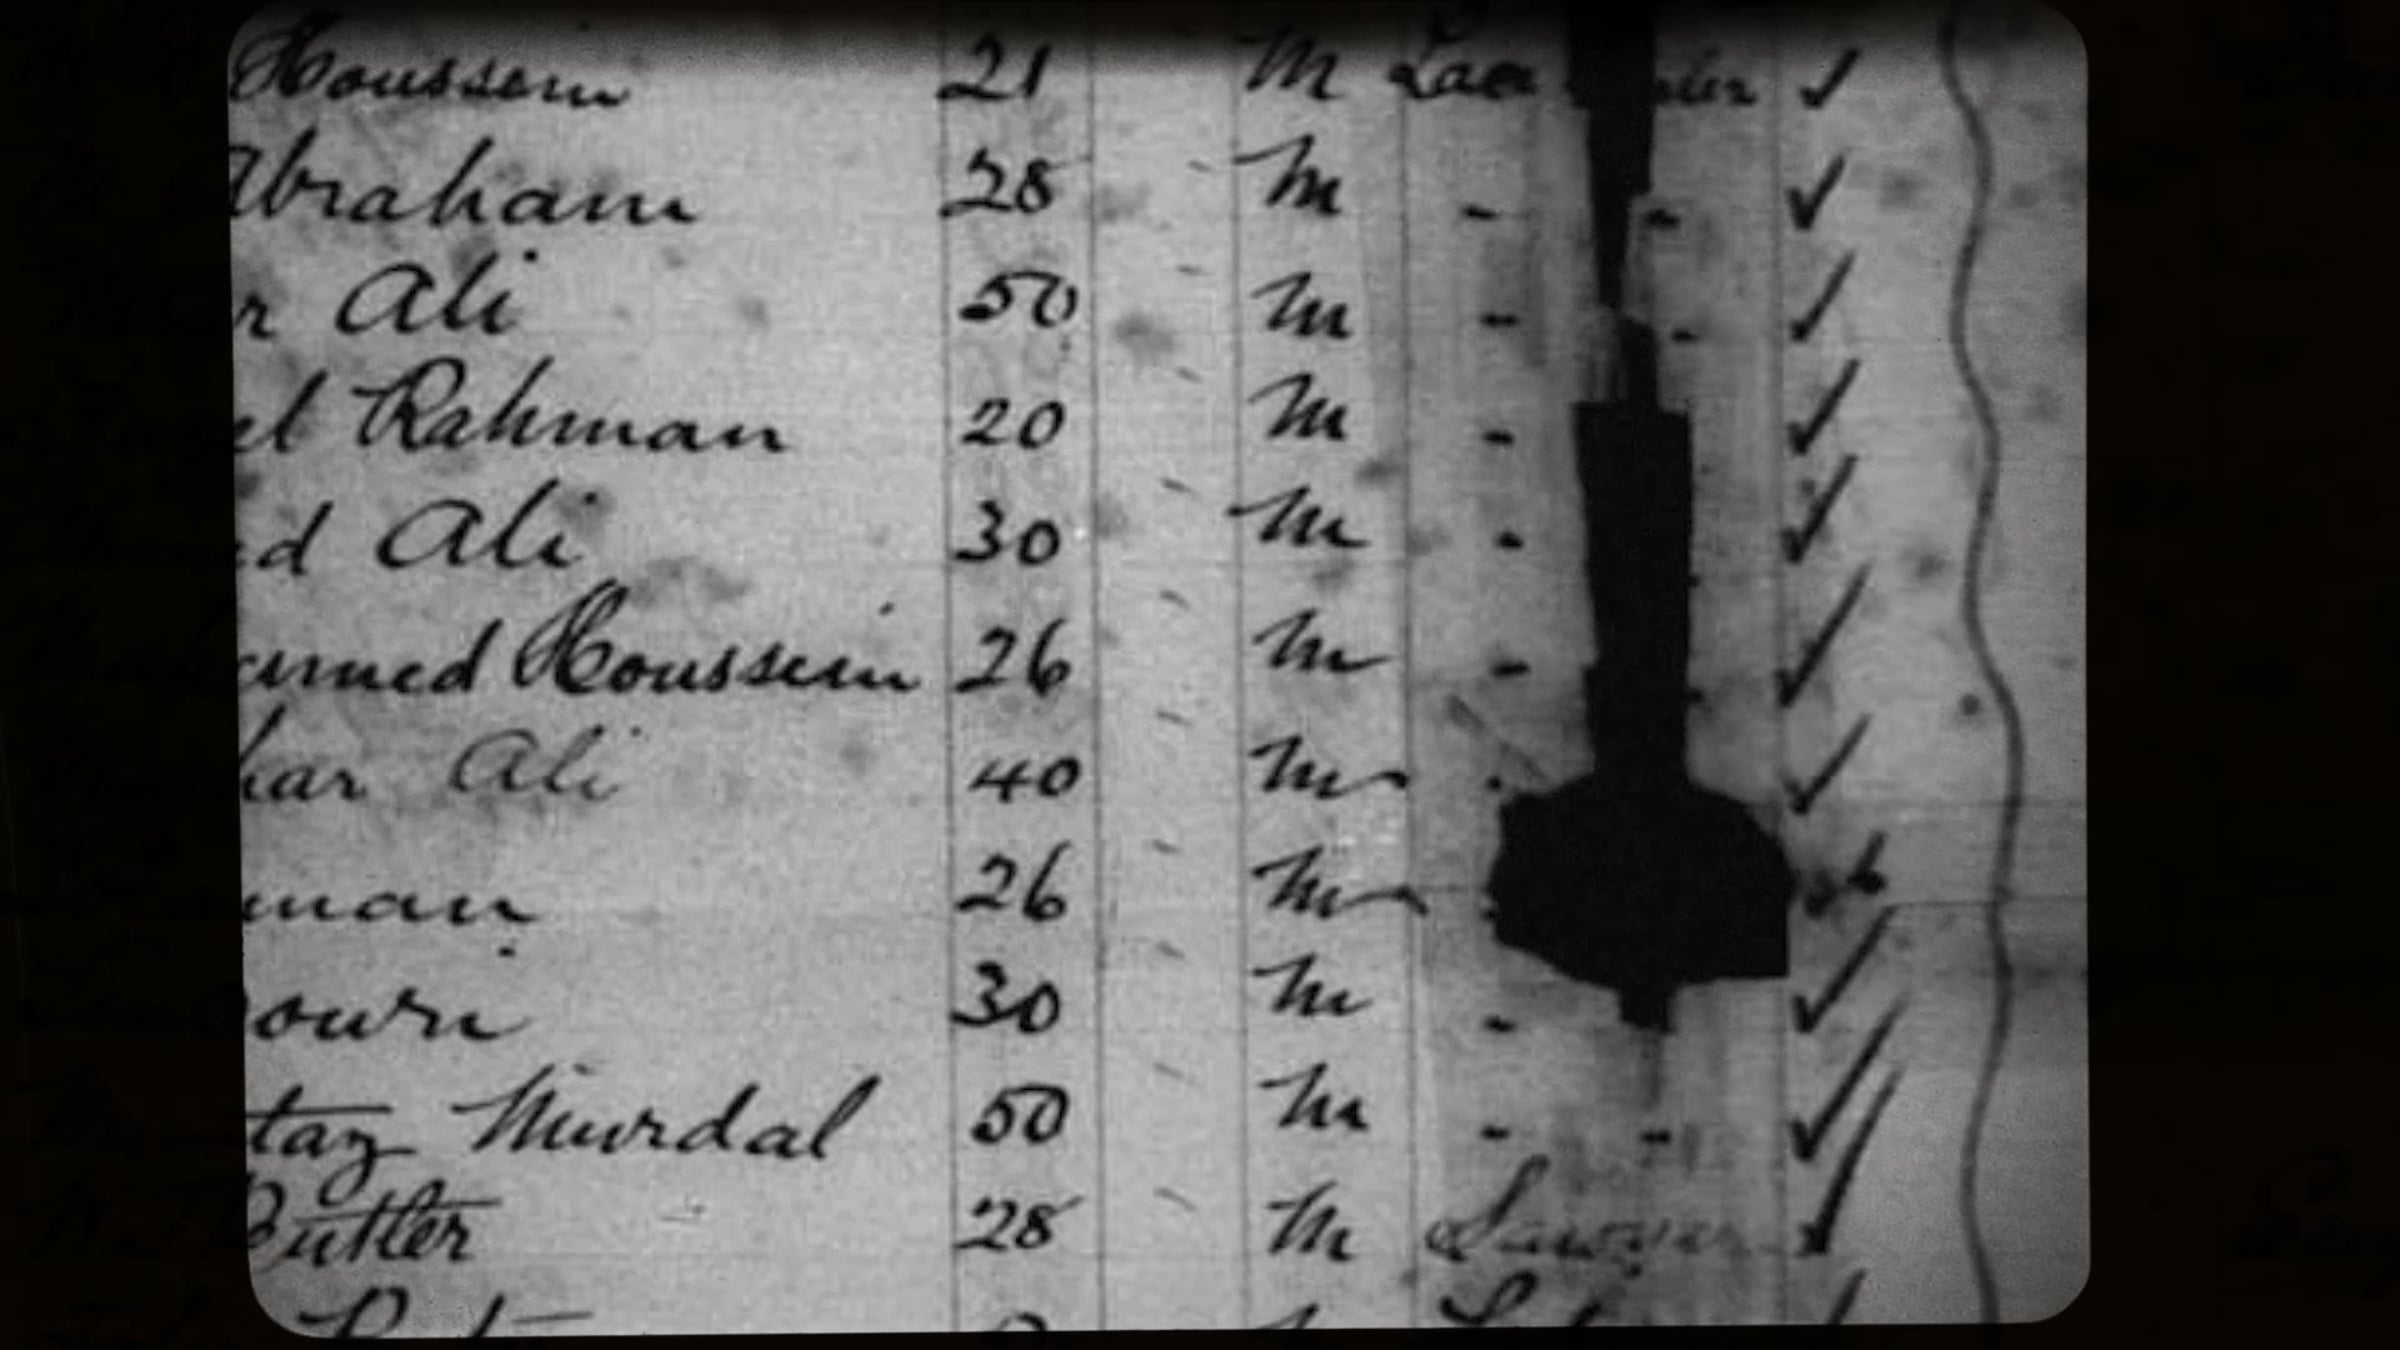 Houssein 21 M ✓
Abraham 28 M - - ✓
r Ali 50 M - - ✓
el Rahman 20 M - ✓
ed Ali 30 M - ✓
ammed Houssein 26 M - ✓
har Ali 40 M - ✓
man 26 M
own 30 M - ✓
taz Murdal 50 M - - ✓
Butler 28 M Lawyer ✓